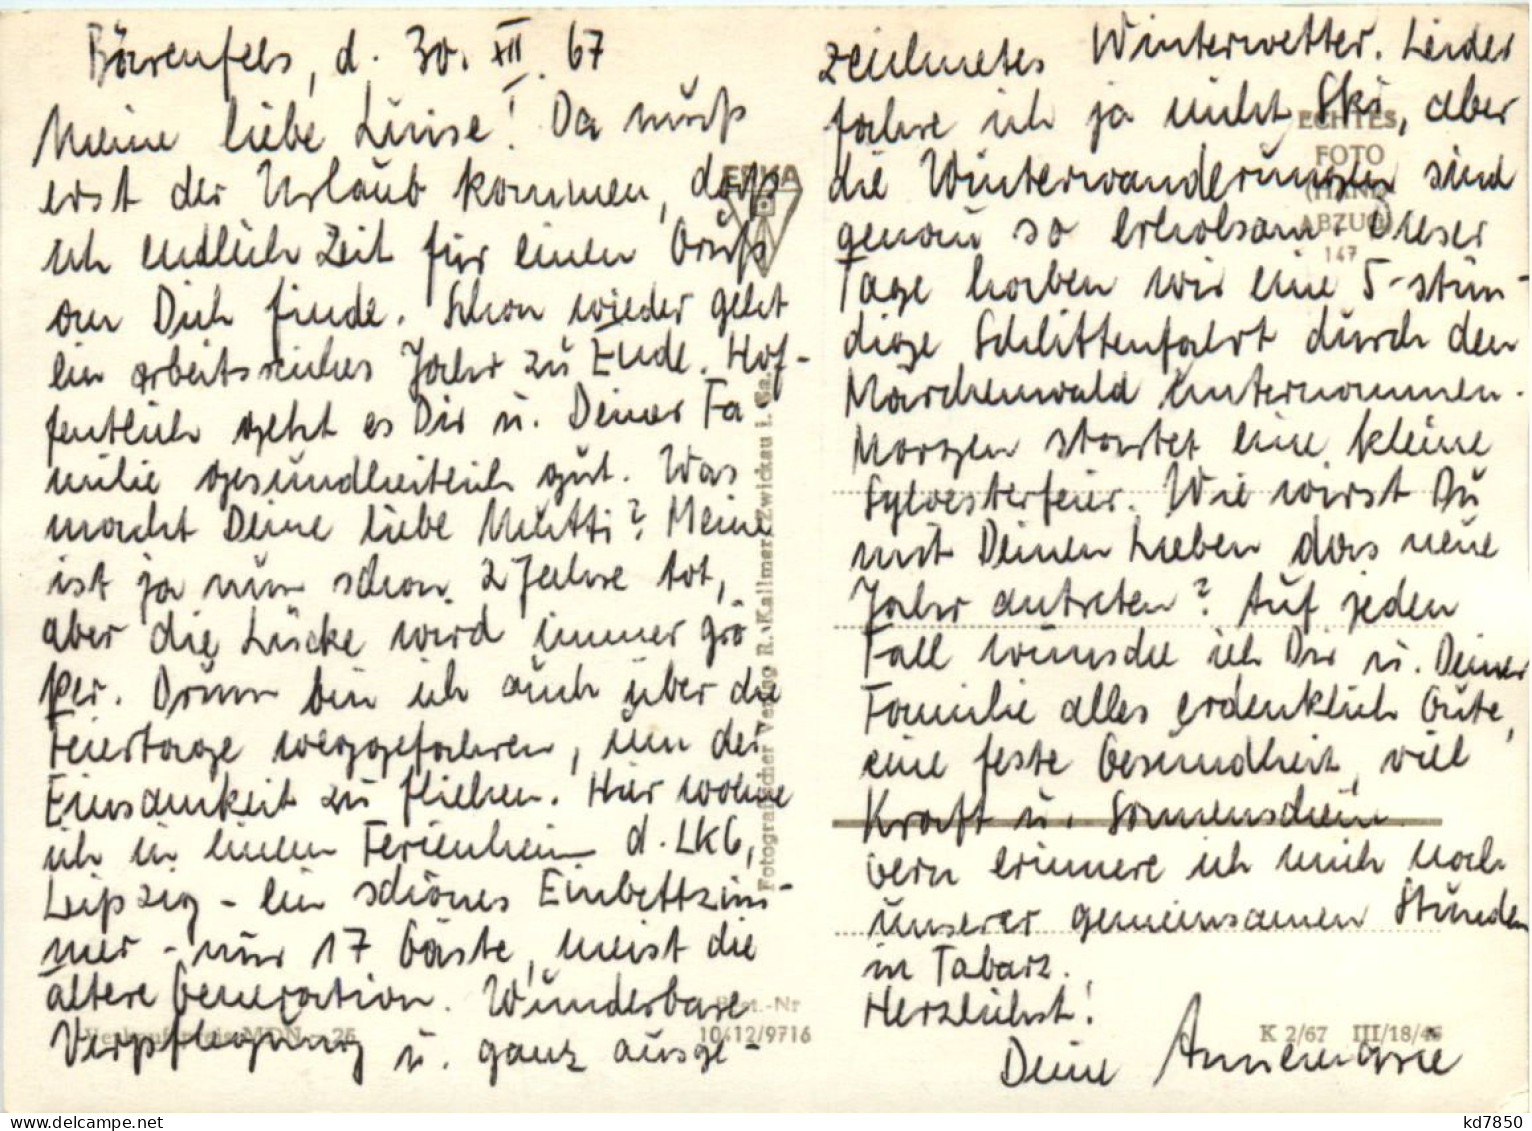 Bärenfels, d. 30. XII. 67
Meine liebe Luise! Da muß
erst der Urlaub kommen, daß
ich endlich Zeit für einen Gruß
an Dich finde. Schon wieder geht
ein arbeitsreiches Jahr zu Ende. Hof-
fentlich geht es Dir u. Deiner Fa-
milie gesundheitlich gut. Was
macht Deine liebe Mutti? Meine
ist ja nun schon 2 Jahre tot,
aber die Lücke wird immer grö-
ßer. Drum bin ich auch über die
Feiertage weggefahren, um der
Einsamkeit zu fliehen. Hier wohne
ich in einem Ferienheim d. LKG,
Leipzig - ein schönes Einbettzim-
mer - nur 17 Gäste, meist die
ältere Generation. Wunderbare
Verpflegung u. ganz ausge-
zeichnetes Winterwetter. Leider
fahre ich ja nicht Ski, aber
die Winterwanderungen sind
genau so erholsam. Dieser
Tage haben wir eine 5-stün-
dige Schlittenfahrt durch den
Märchenwald unternommen.
Morgen startet eine kleine
Sylvesterfeier. Wie wirst Du
mit Deinen Lieben das neue
Jahr antreten? Auf jeden
Fall wünsche ich Dir u. Deiner
Familie alles erdenklich Gute,
eine feste Gesundheit, viel
Kraft u. Sonnenschein.
Gern erinnere ich mich noch
unserer gemeinsamen Stunden
in Tabarz.
Herzlichst!
Deine Annemarie
ERKA
Fotografischer Verlag R. Kallmer, Zwickau i. Sa.
ECHTES
FOTO
(HAND-
ABZUG)
147
Best.-Nr
10412/9716
K 2/67 III/18/48
kd7850